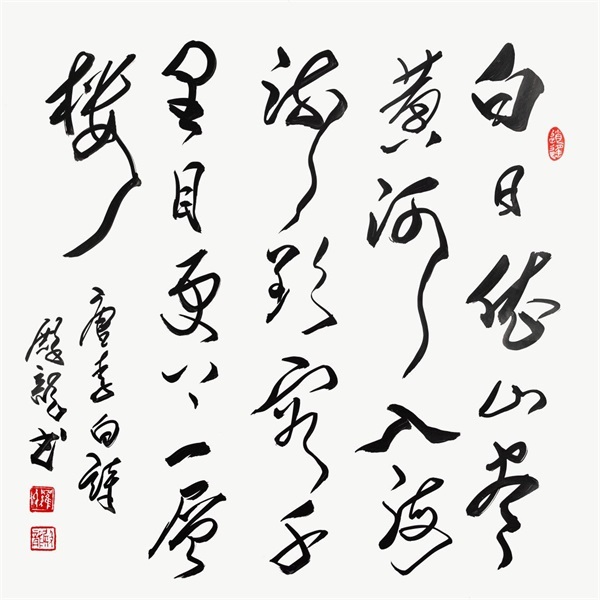 白日依山尽
黄河入海
流欲穷千
里目更上一层
楼
唐李白詩